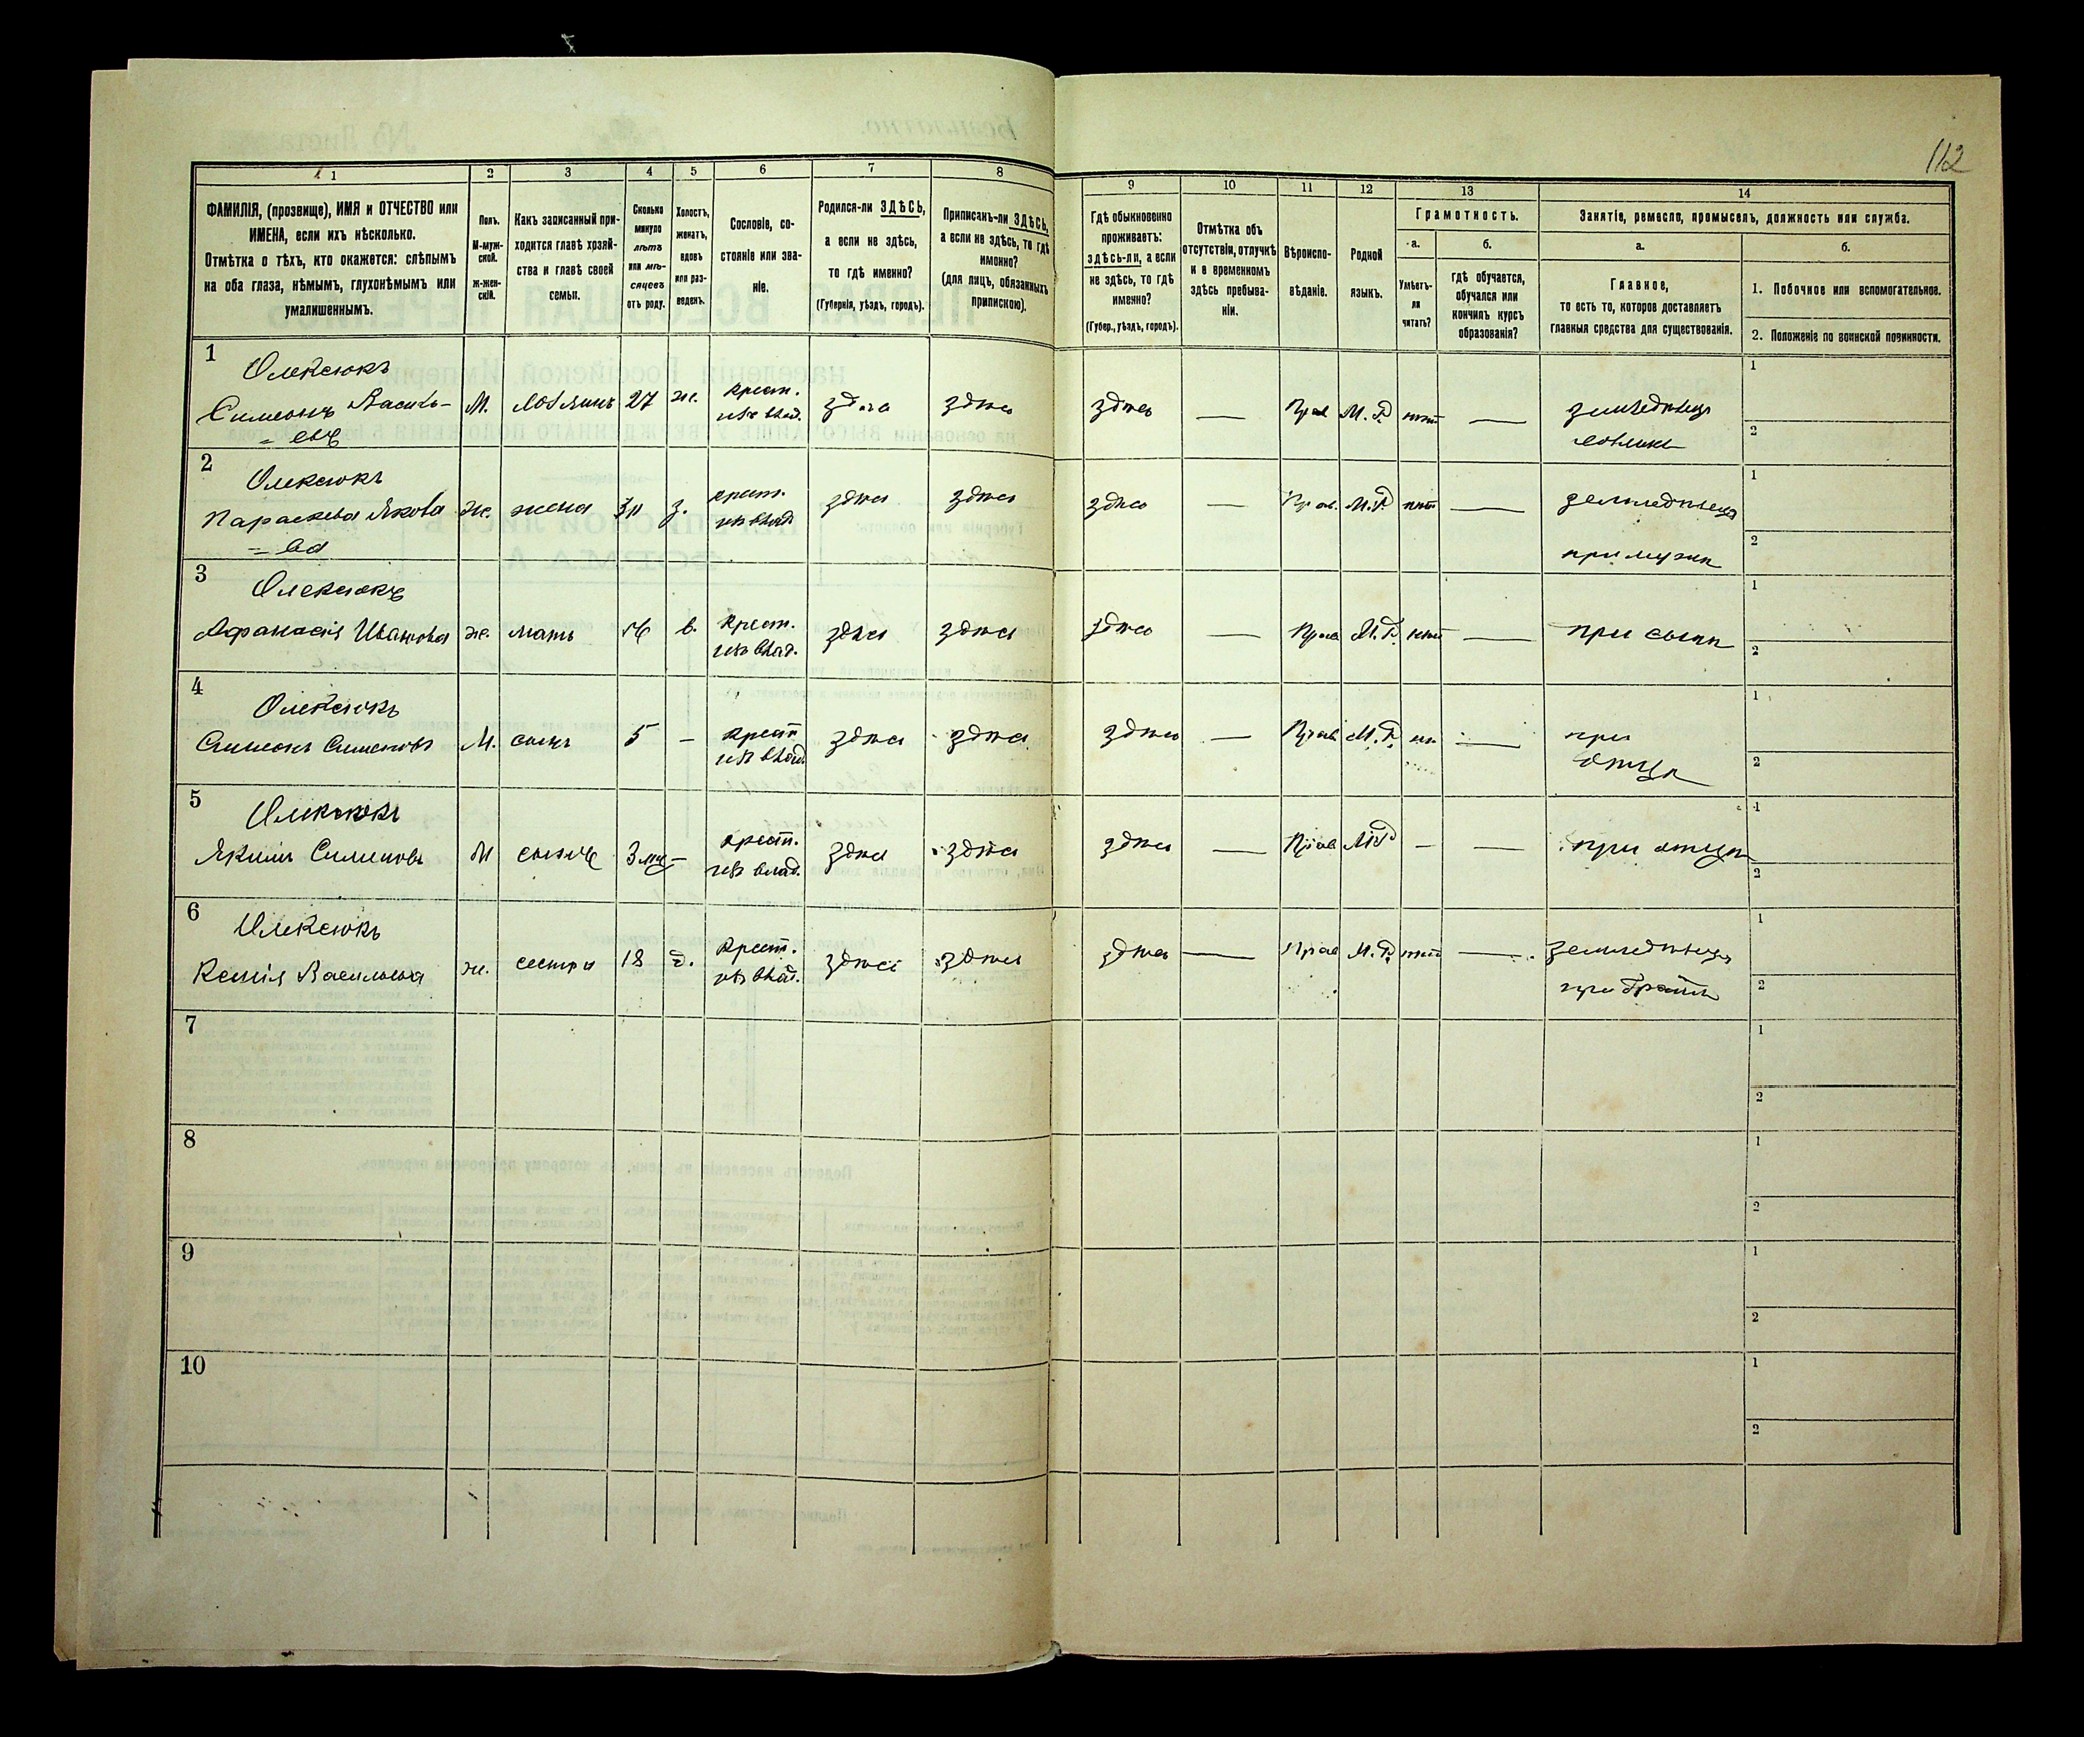 112
1
2
3
4
5
6
7
8
9
10
11
12
13
14
ФАМИЛІЯ, (прозвище), ИМЯ и ОТЧЕСТВО или
ИМЕНА, если ихъ нѣсколько.
Отмѣтка о тѣхъ, кто окажется: слѣпымъ
на оба глаза, нѣмымъ, глухонѣмымъ или
умалишеннымъ.
Полъ.
М-муж-
ской.
ж-жен-
скій.
Какъ записанный при-
ходится главѣ хозяй-
ства и главѣ своей
семьи.
Сколько
минуло
лѣтъ
или мѣ-
сяцевъ
отъ роду.
Холостъ,
женатъ,
вдовъ
или раз-
веденъ.
Сословіе, со-
стояніе или зва-
ніе.
Родился-ли ЗДѢСЬ,
а если не здѣсь,
то гдѣ именно?
(Губернія, уѣздъ, городъ).
Приписанъ-ли ЗДѢСЬ,
а если не здѣсь, то гдѣ
именно?
(для лицъ, обязанныхъ
припискою).
Гдѣ обыкновенно
проживаетъ:
здѣсь-ли, а если
не здѣсь, то гдѣ
именно?
(Губер., уѣздъ, городъ).
Отмѣтка объ
отсутствіи, отлучкѣ
и о временномъ
здѣсь пребыва-
ніи.
Вѣроиспо-
вѣданіе.
Родной
языкъ.
Грамотность.
а.
Умѣетъ-
ли
читать?
б.
гдѣ обучается,
обучался или
кончилъ курсъ
образованія?
Занятіе, ремесло, промыселъ, должность или служба.
а.
Главное,
то есть то, которое доставляетъ
главныя средства для существованія.
б.
1. Побочное или вспомогательное.
2. Положеніе по воинской повинности.
1
Олексюкъ
Симеонъ Василь-
= евъ
М. 27 же. крест. здѣсь здѣсь здѣсь — Прав М. Р. нѣтъ — земледѣлецъ
1
2
2
Олексюкъ
Параскева Якова
= ва
же. жена з. крест. здѣсь здѣсь здѣсь — Прав. М.Р. нѣтъ — земледѣлецъ
при мужѣ
1
2
3
Олексюкъ
Афанасія Иванова же. мать в. крест. здѣсь здѣсь здѣсь — Прав М.Р. нѣтъ — при сынѣ
1
2
4
Олексюкъ
Симеонъ Симеоновъ М. сынъ 5 — крест здѣсь здѣсь здѣсь — Прав М.Р. — при
отцѣ
1
2
5
Олексюкъ
Якимъ Симеоновъ М сынъ 3 — крест. здѣсь здѣсь здѣсь — Прав М.Р — — при отцѣ
1
2
6
Олексюкъ
Ксенія Васильева же. сестра 18 д. крест. здѣсь здѣсь здѣсь — Прав М.Р. нѣтъ — земледѣлецъ
при братѣ
1
2
7
1
2
8
1
2
9
1
2
10
1
2